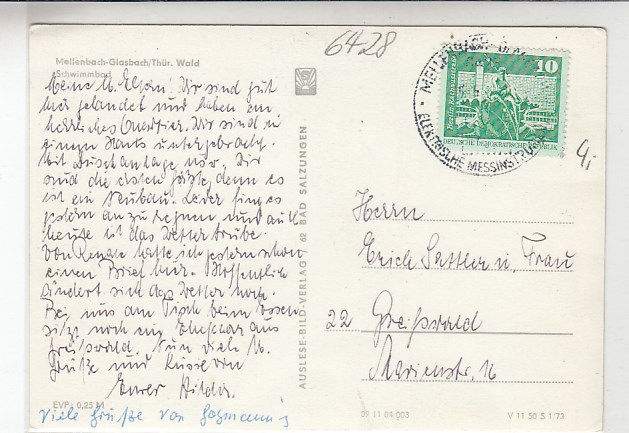 6428
Mellenbach-Glasbach/Thür. Wald
Schwimmbad
Meine lb. Eltern! Wir sind gut
hier gelandet und haben ein
herrliches Quartier. Wir sind in
einem Haus untergebracht.
Mit Duschanlage usw. Wir
sind die ersten Gäste, denn es
ist ein Neubau. Leider fing es
gestern an zu regnen und auch
heute ist das Wetter trübe.
Von Renate hatte ich gestern schon
einen Brief hier. Hoffentlich
ändert sich das Wetter noch.
Bei uns am Tisch beim Essen
sitzt noch ein Ehepaar aus
Greifswald. Nun viele lb.
Grüße und Küsse von
Eurer Hilda.
EVP: 0,25 M
Viele Grüße von
AUSLESE-BILD-VERLAG 62 BAD SALZUNGEN
MELLENBACH-GLASBACH
ELEKTRISCHE MESSINSTRUM
10
Berlin, Rathausstraße
DEUTSCHE DEMOKRATISCHE REPUBLIK
Herrn
Erich Sattler u. Frau
22 Greifswald
Marienstr. 16
09 11 04 003
V 11 50 S 1/73